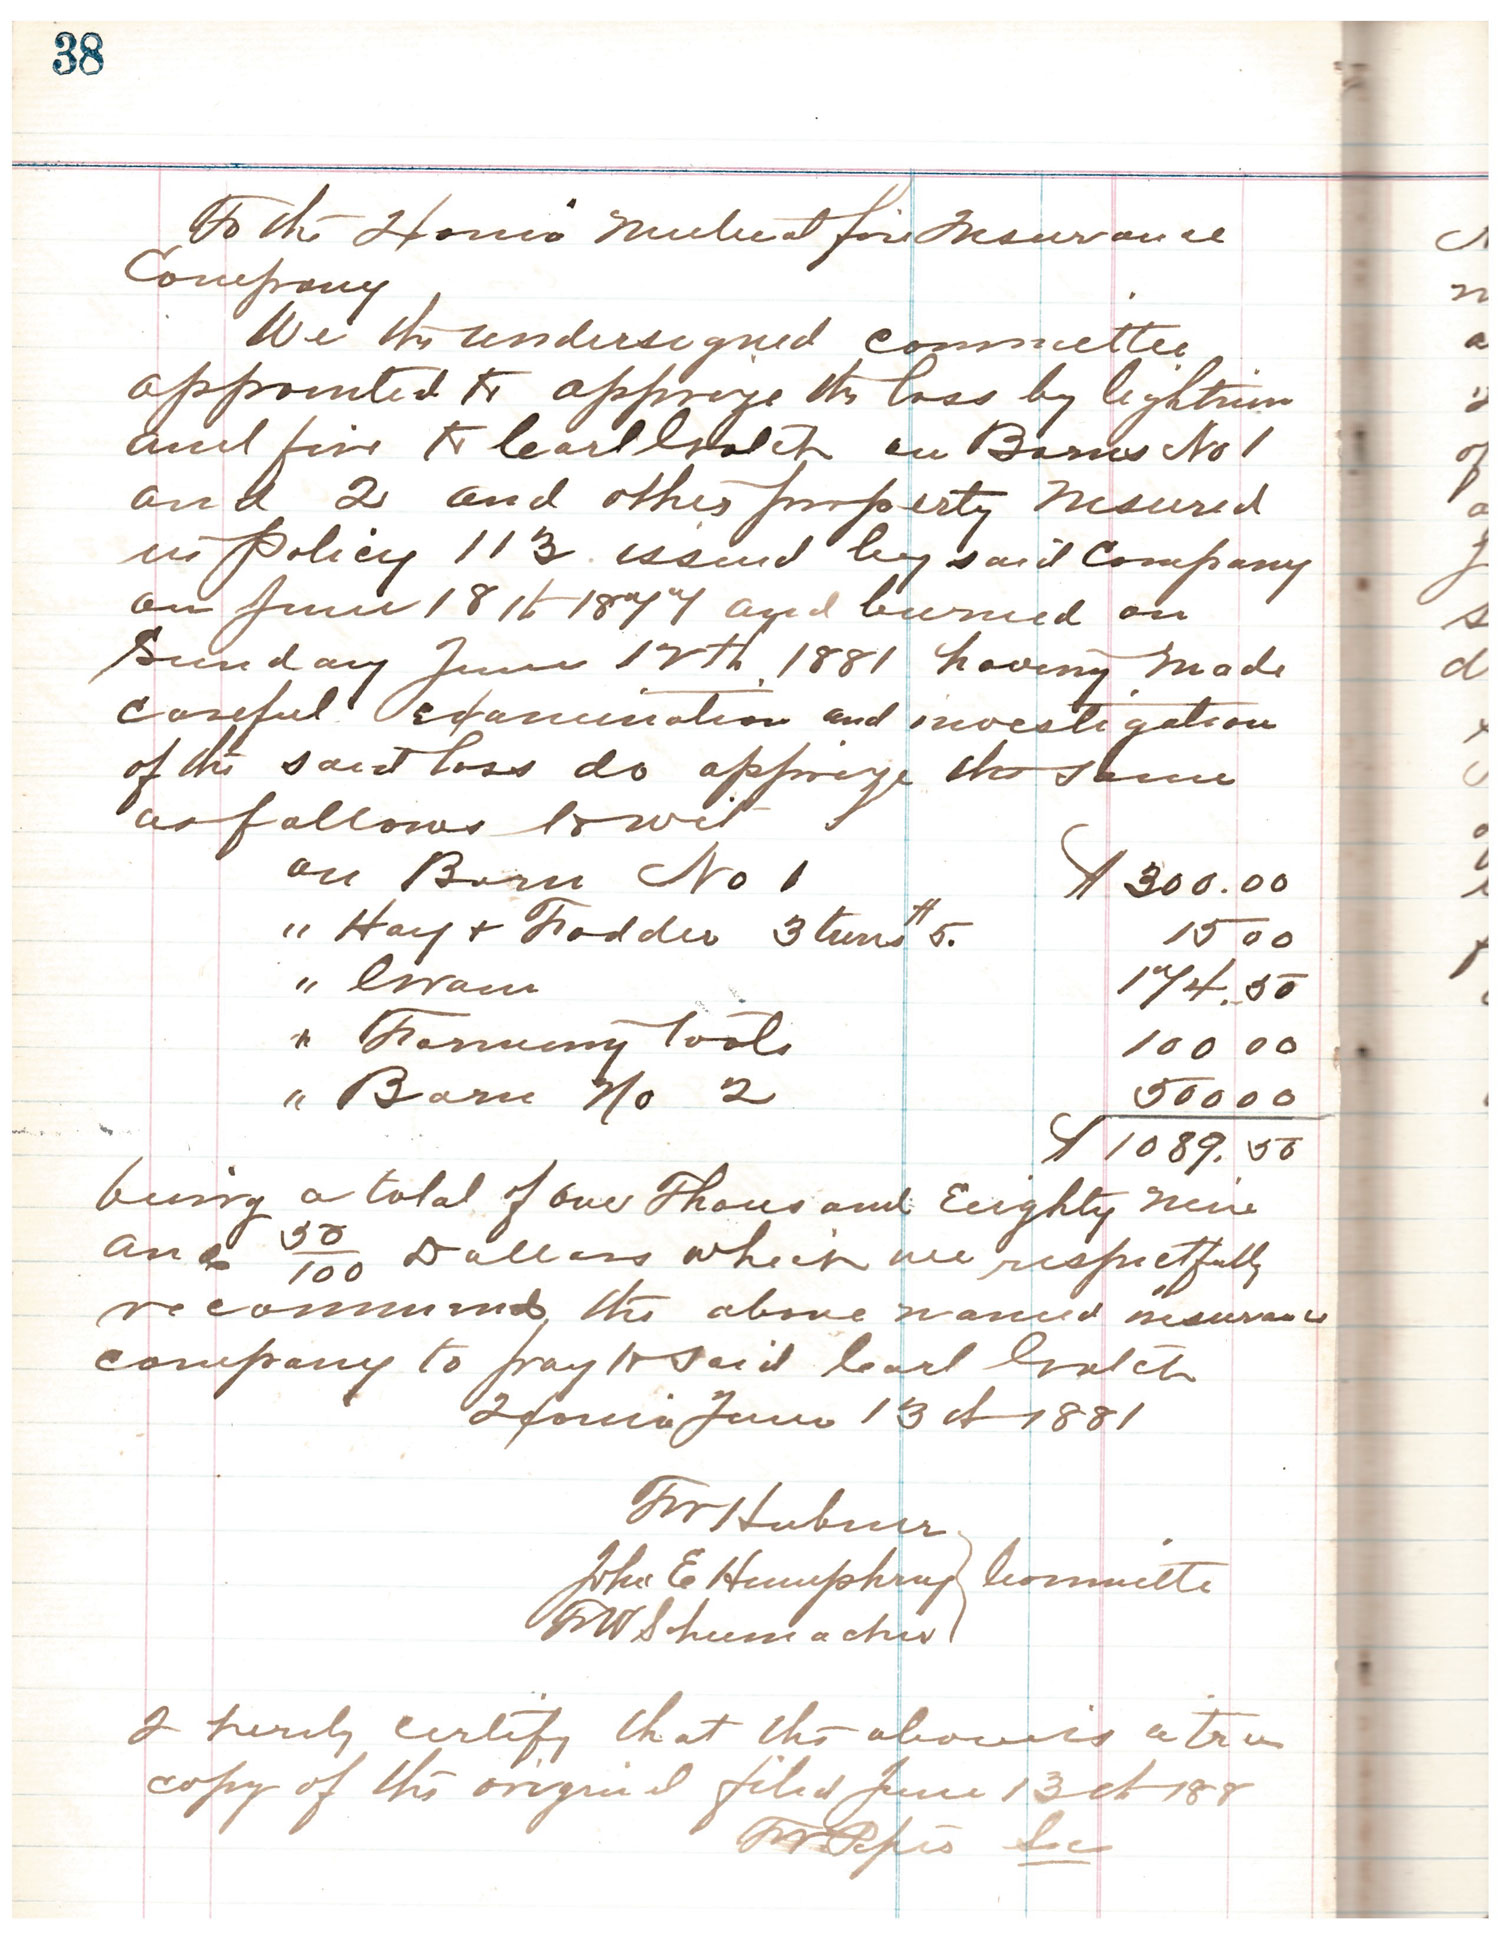 38
To the Honio Mutual fire Insurance
Company
We the undersigned committee
appointed to apprize the loss by lightnin
and fire to Carl Gralch on Barns No 1
and 2 and other property Insured
in Policy 113 issued by said Company
on June 18th 1877 and burned on
Sunday June 12th 1881 having made
careful examination and investigation
of the said loss do apprize the same
as follows to wit
on Barn No 1 $ 300.00
" Hay & Fodder 3 tuns $5. 15 00
" Grain 174.50
" Farming tools 100 00
" Barn No 2 500 00
$ 1089.50
being a total of one Thousand Eighty Nine
and 50/100 Dollars which we respectfully
recommend the above named insurance
company to pay to said Carl Gralch
June 13th 1881
FW Hubner
John E Humphrey } Committe
FW Schumacher
I herely certify that the above is a true
copy of the original filed June 13th 188
Sec